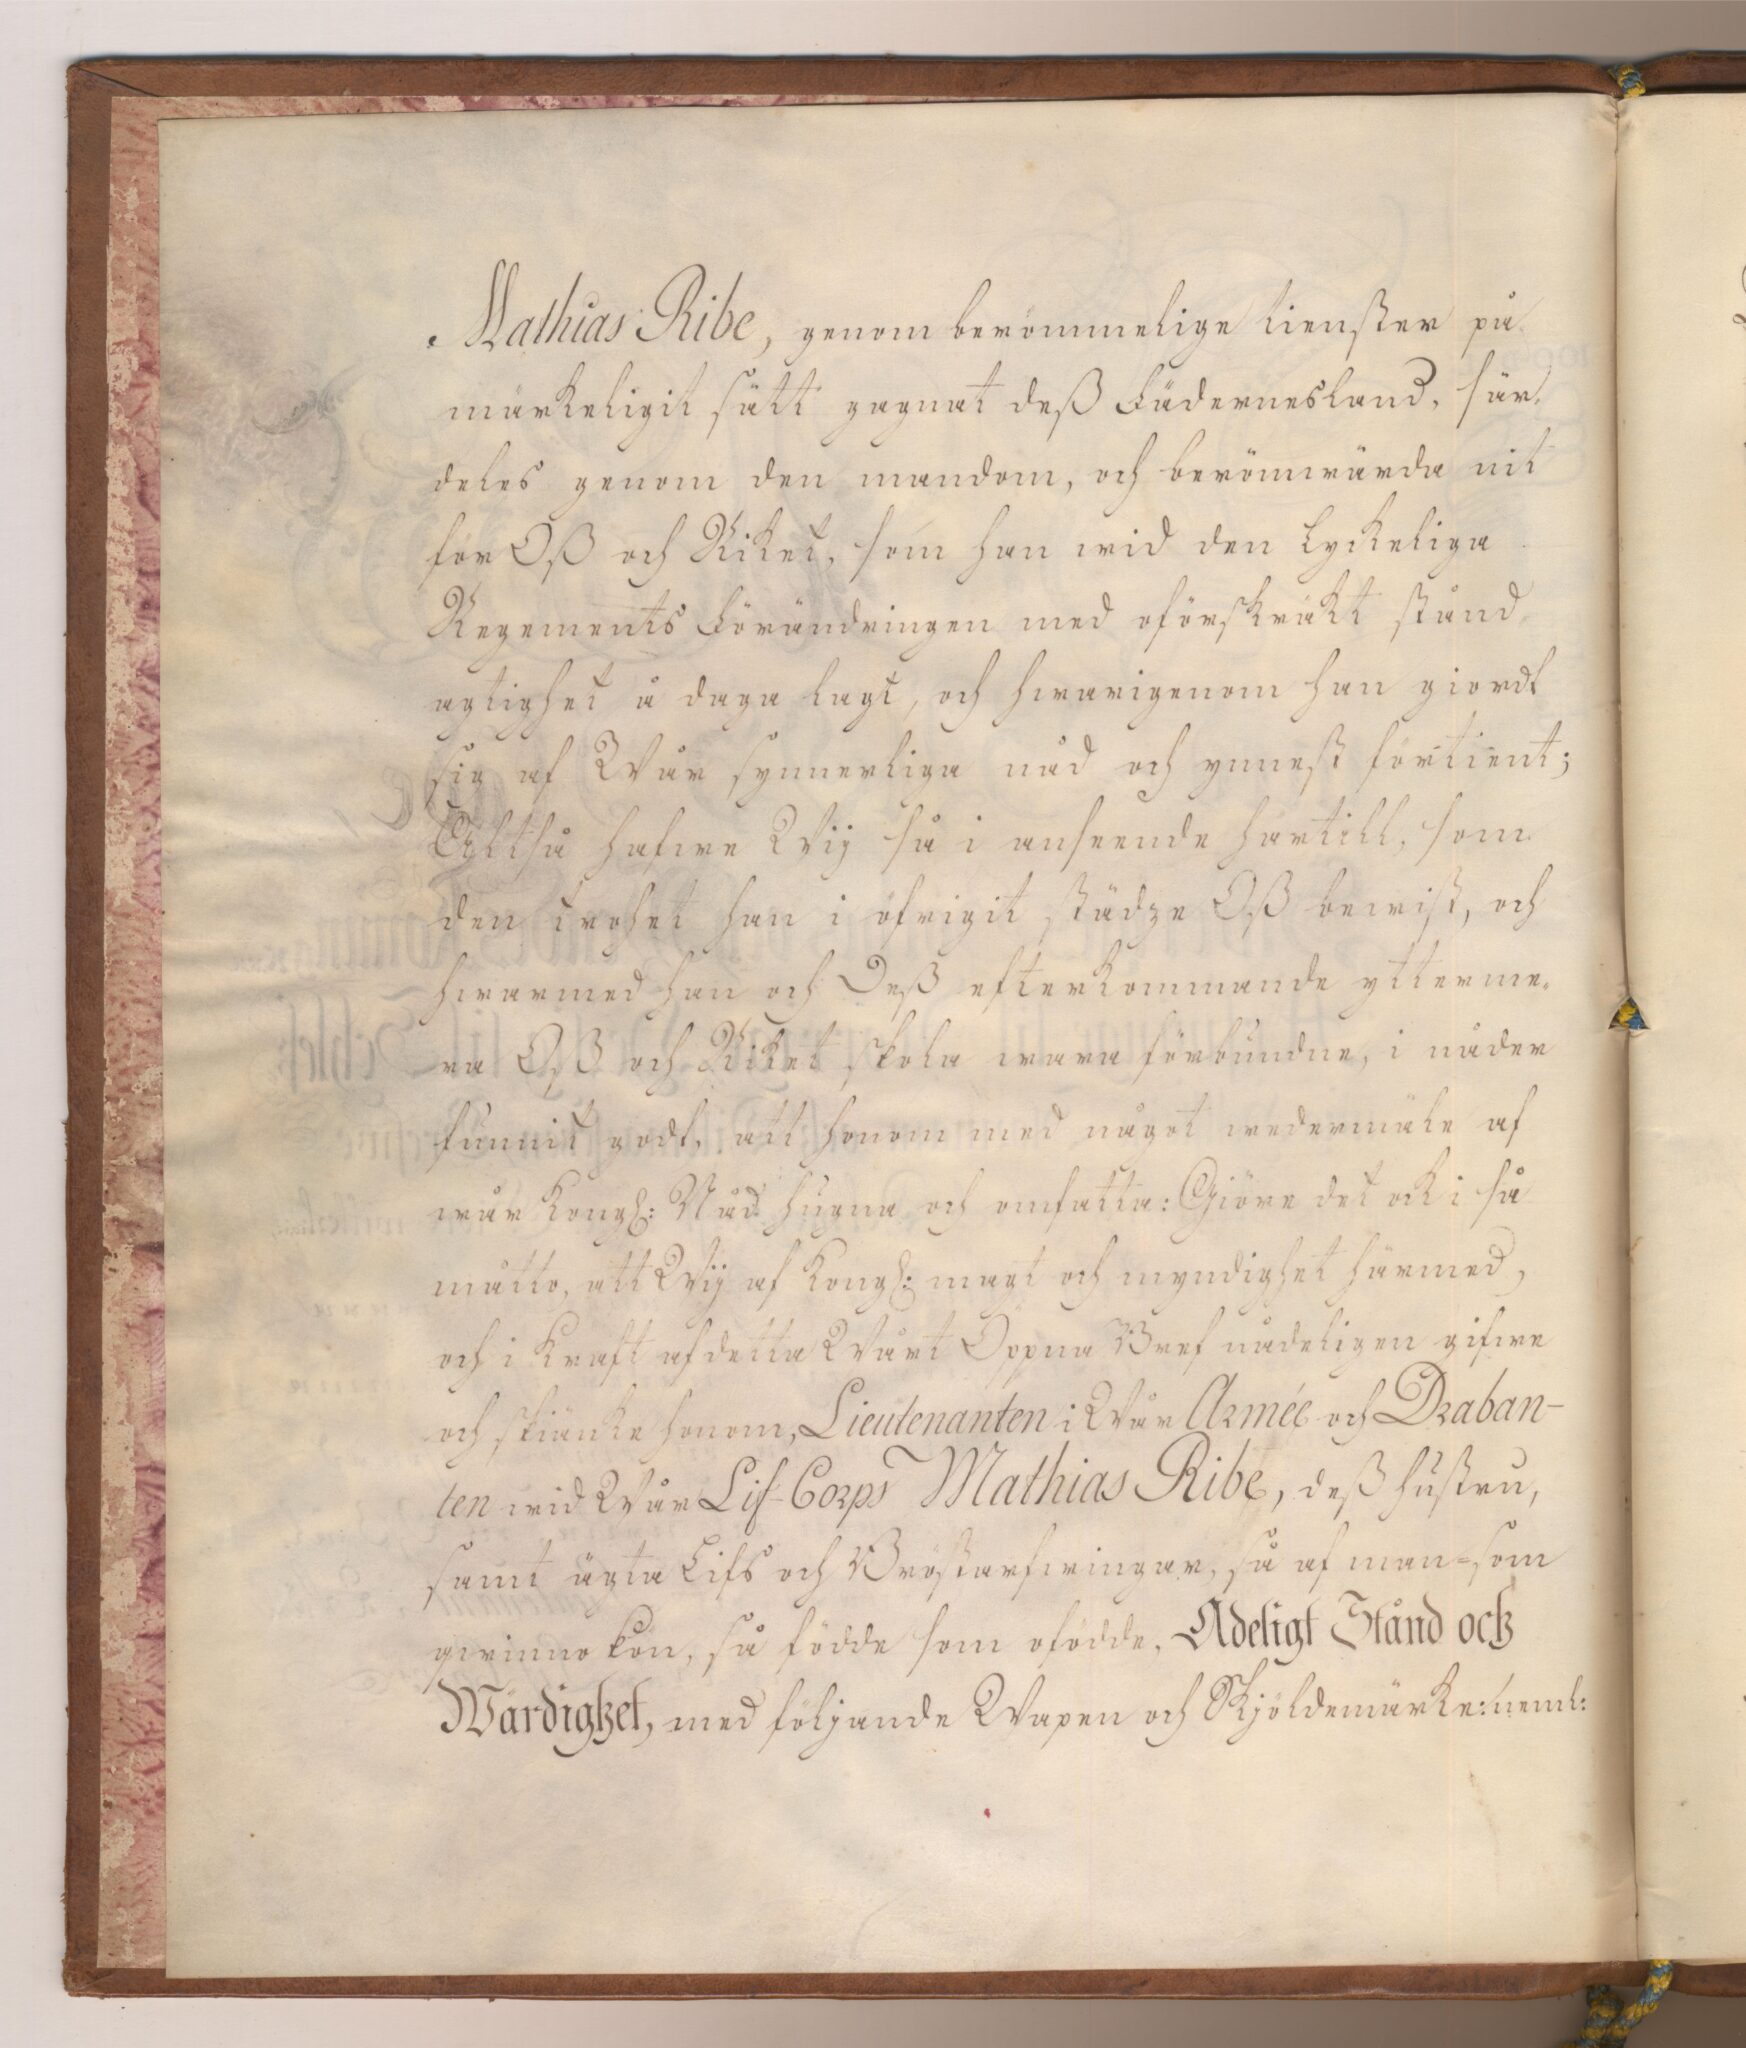 Mathias Ribe, genom berömmelige tienster på
märkeligit sätt gagnat deß Fädernesland, sär-
deles genom den mandom, och berömwärda nit
för Oß och Riket, som han wid den Lyckeliga
Regements Förändringen med oförskräkt stånd
agtighet å daga lagt, och hwarigenom han giordt
sig af Wår synnerliga nåd och ynnest förtient;
Altså hafwe Wij så i anseende härtill, som
den trohet han i öfrigit städze Oß bewist, och
hwarmed han och Deß efterkommande ytterme-
ra Oß och Riket skola wara förbundne, i nåder
funnit godt, att honom med något wedermäle af
wår Kongl: Nåd hugna och omfatta: Giöre det ock i så
matto, att Wij af Kongl: magt och myndighet härmed,
och i Kraft af detta Wårt Öppna Bref nådeligen gifwe
och skiänke honom, Lieutenanten i Wår Armée och Draban-
ten wid Wår Lif-Corps Mathias Ribe, deß hustru,
samt ägta Lifs och Bröstarfwingar, så af man- som
qwinno kön, så födde som ofödde, Adeligt Stånd och
Wärdighet, med följande Wapen och Skjöldemärke: neml: